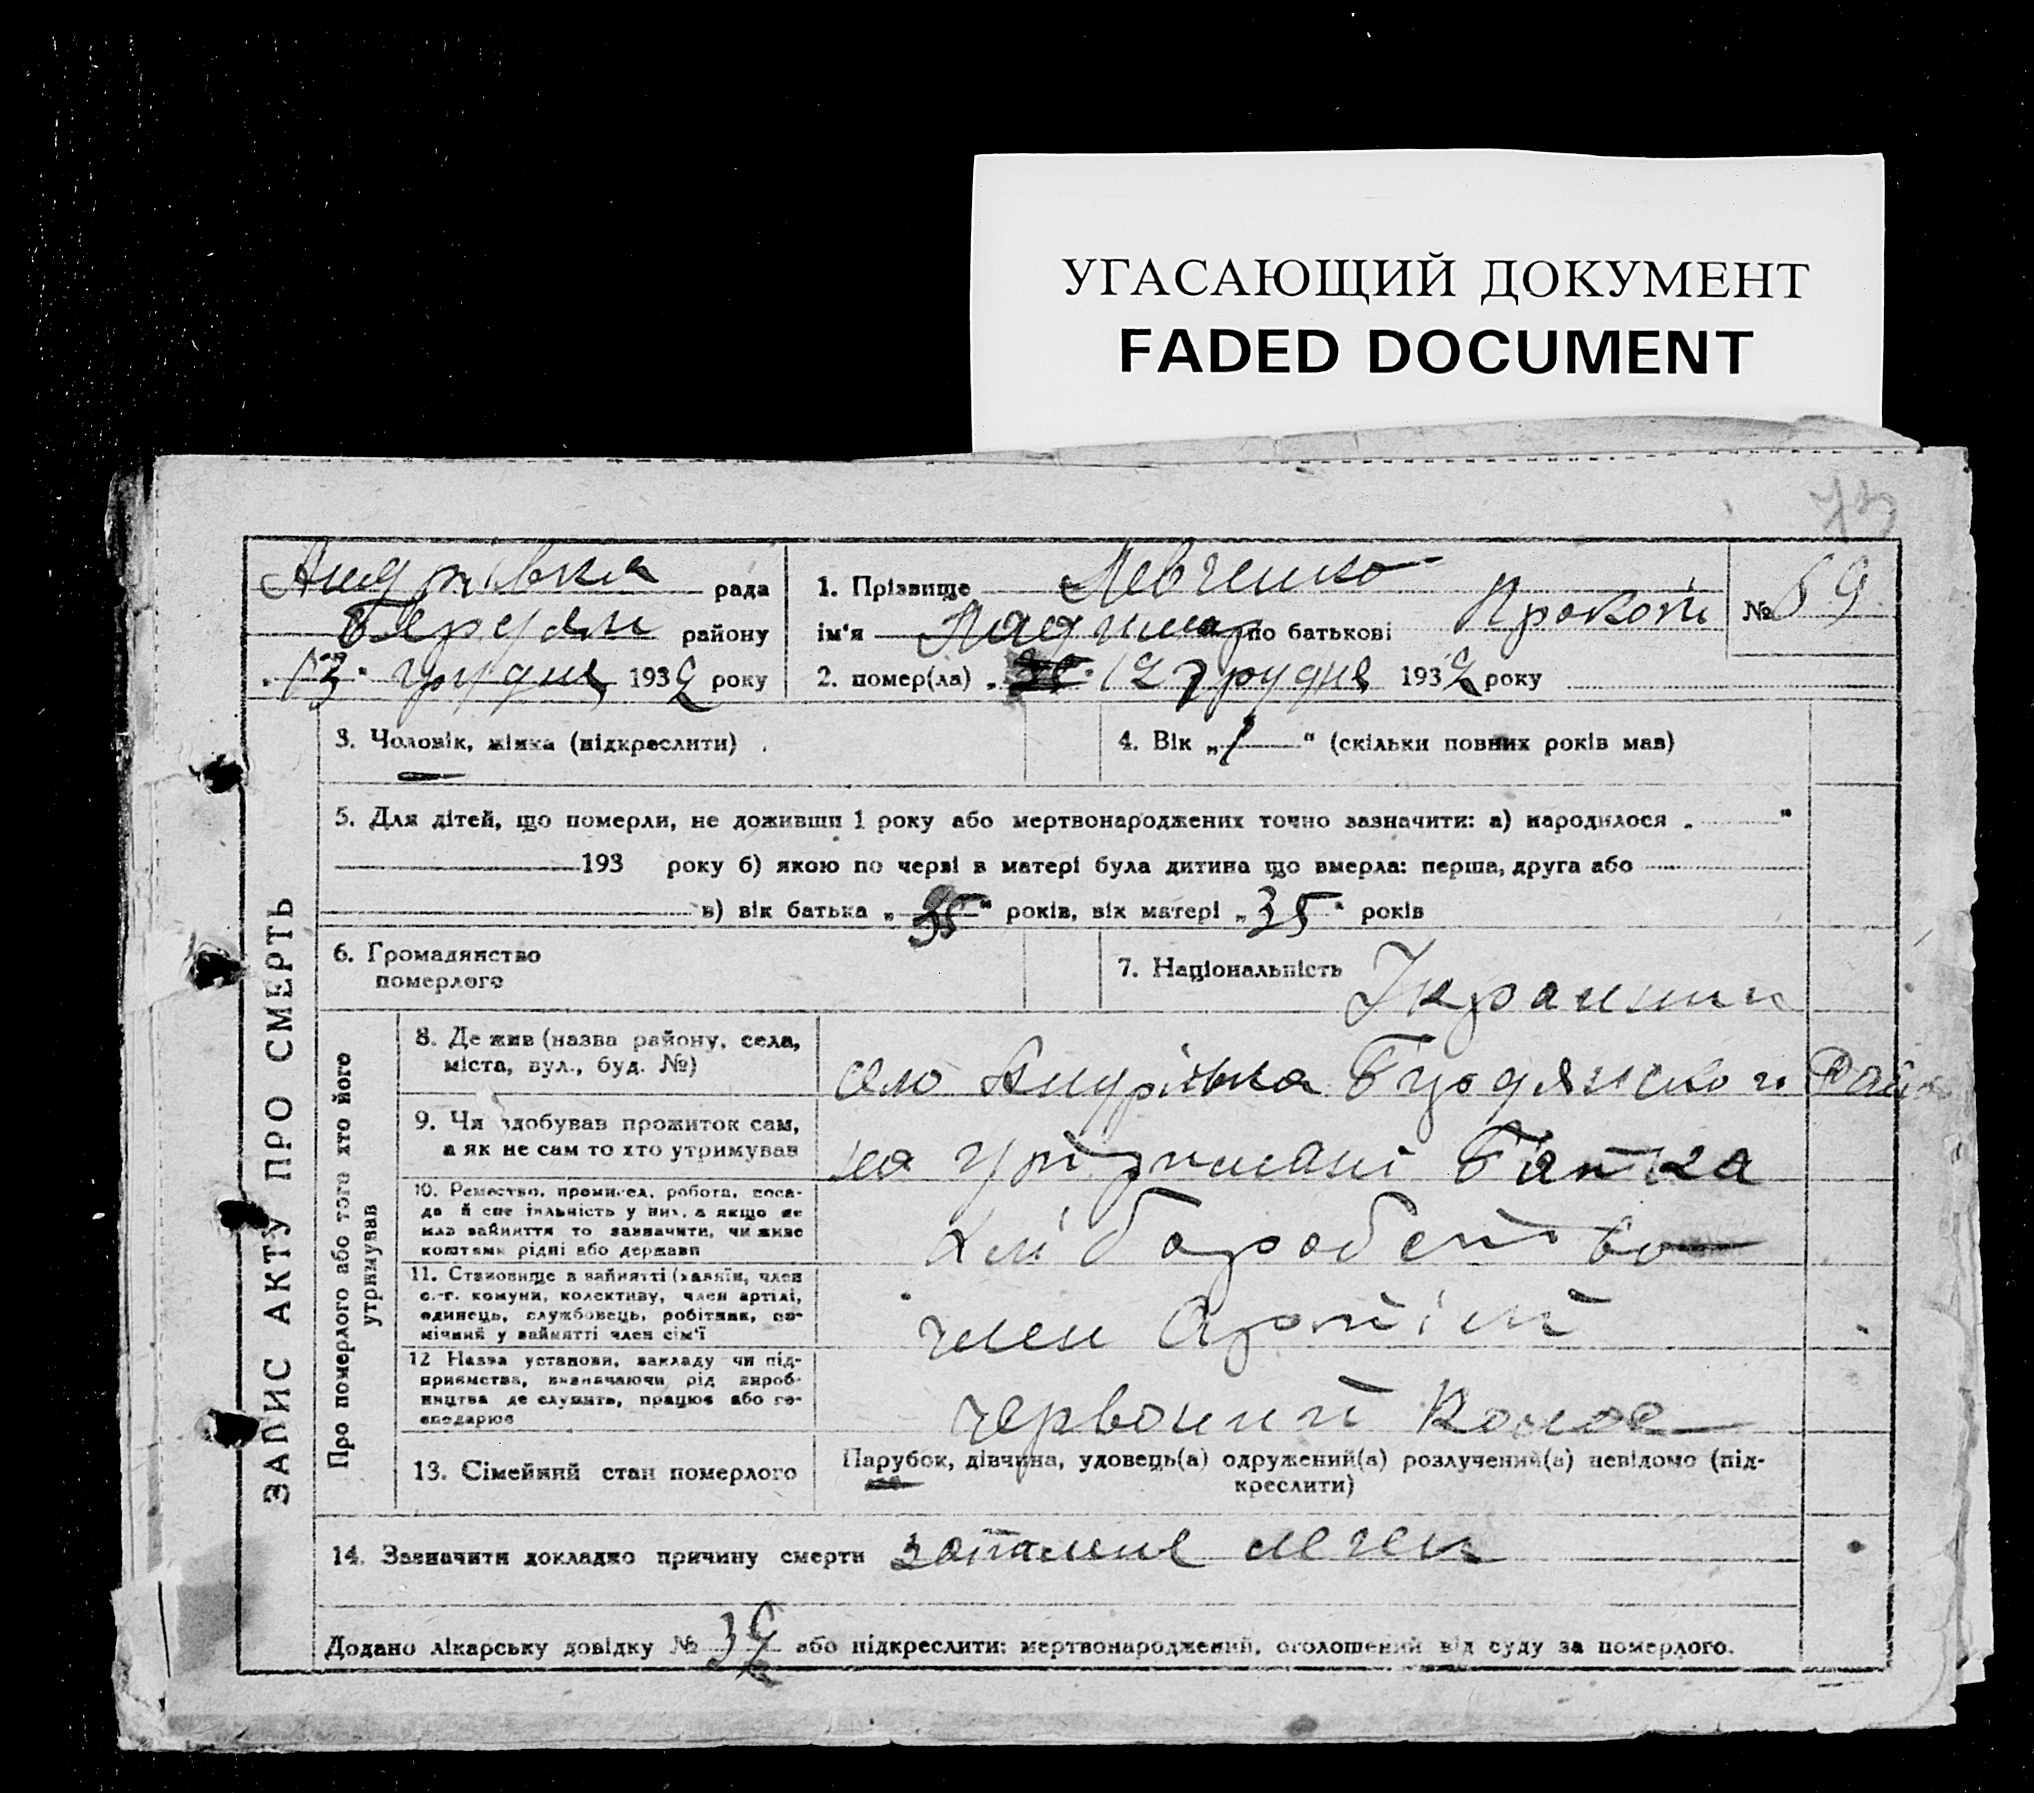 УГАСАЮЩИЙ ДОКУМЕНТ
FADED DOCUMENT
73
Андрівка рада
района району
13 грудня 1932 року
1. Прізвище Левченко
ім'я по батькові Прокоп
2. помер(ла) „ 12 грудня 1932 року
№ 69
ЗАПИС АКТУ ПРО СМЕРТЬ
3. Чоловік, жінка (підкреслити)
4. Вік „1“ (скільки повних років мав)
5. Для дітей, що померли, не доживши 1 року або мертвонароджених точно зазначити: а) народилося „ “
193 року б) якою по черві в матері була дитина що вмерла: перша, друга або
в) вік батька „35“ років, вік матері „35“ років
6. Громадянство
померлого
7. Національність Украинин
Про померлого або того хто його
утримував
8. Де жив (назва району, села,
міста, вул., буд. №)
село Андрівка
9. Чи здобував прожиток сам,
а як не сам то хто утримував
на утримані Батка
10. Ремество, промисел, робота, поса-
да й спеціяльність у них, а якщо не
мав зайняття то зазначити, чи живе
коштами рідні або держави
хліборобство
11. Становище в зайнятті (хазяїн, член
с.-г. комуни, колективу, член артілі,
одинець, службовець, робітник, по-
мічний у зайнятті член сім'ї
член Артілі
12 Назва установи, закладу чи під-
приємства, визначаючи рід вироб-
ництва де служить, працює або го-
сподарює
червоний Колос
13. Сімейний стан померлого
Парубок, дівчина, удовець(а) одружений(а) розлучений(а) невідомо (під-
креслити)
14. Зазначити докладно причину смерти запалине леген
Додано лікарську довідку № або підкреслити: мертвонароджений, оголошений від суду за померлого.